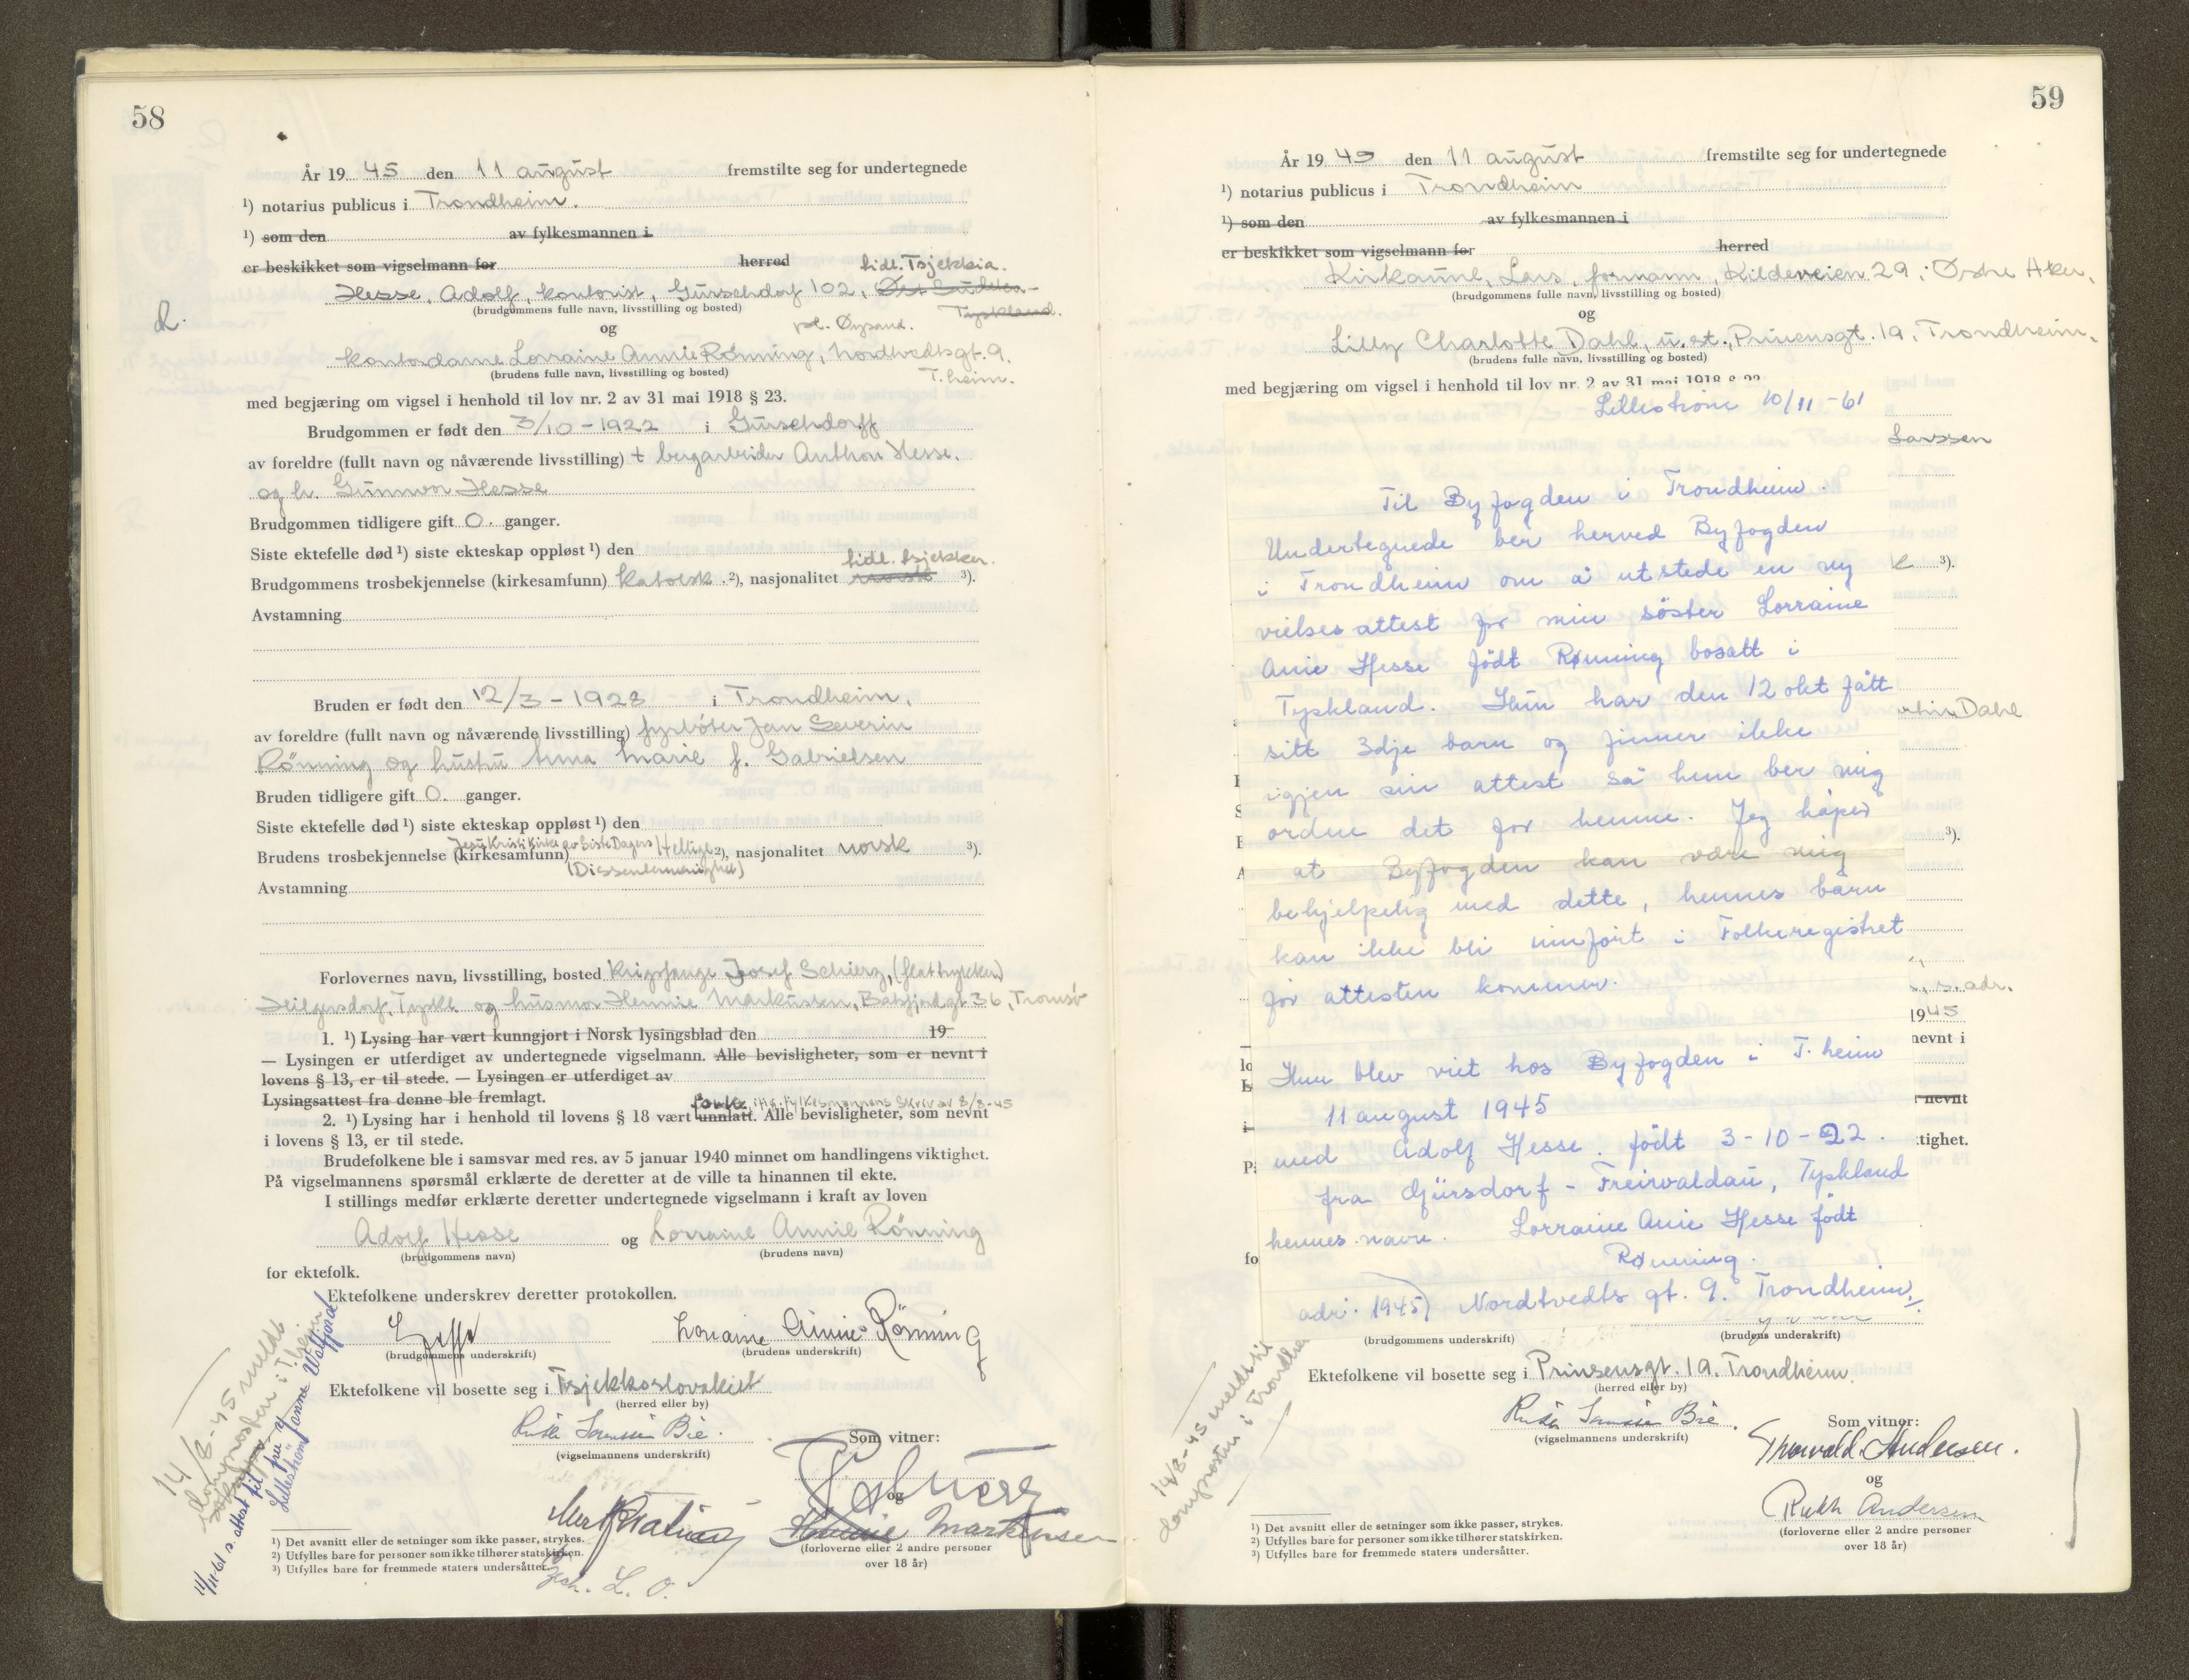 58
År 19 45 den 11 august fremstilte seg for undertegnede
¹) notarius publicus i Trondheim.
¹) som den av fylkesmannen i
er beskikket som vigselmann for herred tidl. Tsjekkia.
Hesse, Adolf, kontorist, Gurschdorf 102,
Tyskland.
(brudgommens fulle navn, livsstilling og bosted)
og
kontordame Lorraine Annie Rönning, Nordtvedtsgt. 9.
T.heim.
(brudens fulle navn, livsstilling og bosted)
med begjæring om vigsel i henhold til lov nr. 2 av 31 mai 1918 § 23.
Brudgommen er født den 3/10-1922 i Gurschdorff
av foreldre (fullt navn og nåværende livsstilling) + bergarbeider Anthon Hesse.
og h. Gunnvor Hesse
Brudgommen tidligere gift 0. ganger.
Siste ektefelle død ¹) siste ekteskap oppløst ¹) den
tidl. tsjekker.
Brudgommens trosbekjennelse (kirkesamfunn) katolsk.²), nasjonalitet norsk ³).
Avstamning
Bruden er født den 12/3-1923 i Trondheim,
av foreldre (fullt navn og nåværende livsstilling) fyrbøter Jan Severin
Rönning og hustru Anna Marie f. Gabrielsen
Bruden tidligere gift 0. ganger.
Siste ektefelle død ¹) siste ekteskap oppløst ¹) den
Jesu Kristi Kirke av Siste Dagers Hellige
Brudens trosbekjennelse (kirkesamfunn) ²), nasjonalitet norsk ³).
(Dissentermenighet)
Avstamning
Forlovernes navn, livsstilling, bosted krigsfange Josef Schierz, (flattrykker)
Heilgersdorf, Tyskl. og husmor Hennie Markussen, Batsfjordgt 36, Tromsø
1. ¹) Lysing har vært kunngjort i Norsk lysingsblad den 19
— Lysingen er utferdiget av undertegnede vigselmann. Alle bevisligheter, som er nevnt i
lovens § 13, er til stede. — Lysingen er utferdiget av
Lysingsattest fra denne ble fremlagt.
fylkesmannens skriv av 8/8-45
2. ¹) Lysing har i henhold til lovens § 18 vært unnlatt. Alle bevisligheter, som nevnt
i lovens § 13, er til stede.
Brudefolkene ble i samsvar med res. av 5 januar 1940 minnet om handlingens viktighet.
På vigselmannens spørsmål erklærte de deretter at de ville ta hinannen til ekte.
I stillings medfør erklærte deretter undertegnede vigselmann i kraft av loven
Adolf Hesse og Lorraine Annie Rönning
(brudgommens navn) (brudens navn)
for ektefolk.
Ektefolkene underskrev deretter protokollen.
Lorraine Annie Rönning
(brudgommens underskrift) (brudens underskrift)
Ektefolkene vil bosette seg i Tsjekkoslovakiet
(herred eller by)
14/8-45 meldt
domprosten i T.heim
11/11-61 s. attest til fru
Lilleström
(vigselmannens underskrift)
Som vitner:
og
Hennie Markussen
(forloverne eller 2 andre personer
over 18 år)
¹) Det avsnitt eller de setninger som ikke passer, strykes.
²) Utfylles bare for personer som ikke tilhører statskirken.
³) Utfylles bare for fremmede staters undersåtter.
59
År 19 45 den 11 august fremstilte seg for undertegnede
¹) notarius publicus i Trondheim
¹) som den av fylkesmannen i
er beskikket som vigselmann for herred
Kirkaune, Lars, formann, Kildeveien 29, Østre Aker,
(brudgommens fulle navn, livsstilling og bosted)
og
Lilly Charlotte Dahl, u. st., Prinsensgt. 19, Trondheim.
(brudens fulle navn, livsstilling og bosted)
med begjæring om vigsel i henhold til lov nr. 2 av 31 mai 1918 § 23
Lillestrøm 10/11-61
Larssen
Til Byfogden i Trondheim.
Undertegnede ber herved Byfogden
i Trondheim om å utstede en ny
vielses attest for min söster Lorraine
Anie Hesse födt Rønning bosatt i
Tyskland. Hun har den 12 okt fått
sitt 3dje barn og finner ikke
igjen sin attest så hun ber mig
ordne det for henne. Jeg håper
at Byfogden kan være mig
behjelpelig med dette, hennes barn
kan ikke bli innfört i Folkeregistret
för attesten kommer.
Hun blev viet hos Byfogden i T.heim
11 august 1945
med Adolf Hesse. födt 3-10-22.
fra Gürsdorf - Freirvaldau, Tyskland
hennes navn. Lorraine Anie Hesse födt
Rønning.
adr. 1945) Nordtvedts gt. 9. Trondheim.
³).
Dahl
³).
s. adr.
1945
nevnt i
nevnt
tighet.
fo
(brudgommens underskrift) (brudens underskrift)
Ektefolkene vil bosette seg i Prinsensgt. 19. Trondheim.
(herred eller by)
14/8-45 meldt til
domprosten i Trondheim
(vigselmannens underskrift)
Som vitner:
Thorvald Andersen.
og
Ruth Andersen
(forloverne eller 2 andre personer
over 18 år)
¹) Det avsnitt eller de setninger som ikke passer, strykes.
²) Utfylles bare for personer som ikke tilhører statskirken.
³) Utfylles bare for fremmede staters undersåtter.